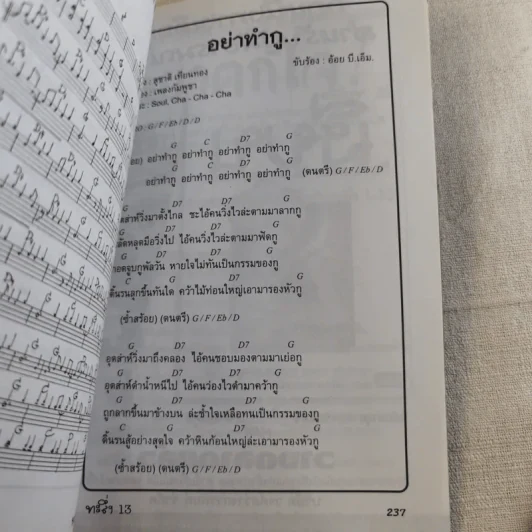 อย่าทำกู...
ขับร้อง : อ้อย บี.เอ็ม.
: สุชาติ เทียนทอง
: เพลงกัมพูชา
: Soul, Cha - Cha - Cha
: G / F / Eb / D / D
G C D7 G
อย่าทำกู อย่าทำกู อย่าทำกู อย่าทำกู
G C D7 G
อย่าทำกู อย่าทำกู อย่าทำกู อย่าทำกู (ดนตรี) G / F / Eb / D
G D7 D7 G
วิ่งมาตั้งไกล ชะไอ้คนวิ่งไวล่ะตามมาลากกู
G D7 D7 G
หลุดมือวิ่งไป ไอ้คนวิ่งไวล่ะตามมาฟัดกู
G D7 D7 G
กูพัลวัน หายใจไม่ทันเป็นกรรมของกู
C G D7 G
ดิ้นรนลุกขึ้นทันใด คว้าไม้ท่อนใหญ่เอามารองหัวกู
(ซ้ำสร้อย) (ดนตรี) G / F / Eb / D
G D7 D7 G
อุตส่าห์วิ่งมาถึงคลอง ไอ้คนชอบมองตามมาเย่อกู
G D7 D7 G
อุตส่าห์ดำน้ำหนีไป ไอ้คนว่องไวดำมาคว้ากู
G D7 D7 G
ถูกลากขึ้นมาข้างบน ล่ะช้ำใจเหลือทนเป็นกรรมของกู
C G D7 G
ดิ้นรนสู้อย่างสุดใจ คว้าหินก้อนใหญ่ล่ะเอามารองหัวกู
(ซ้ำสร้อย) (ดนตรี) G / F / Eb / D
13
237